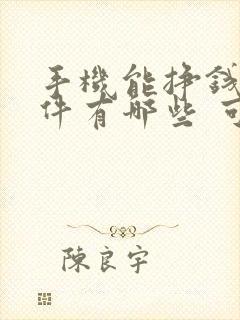 手機能掙錢
件有哪些 可
陳良宇